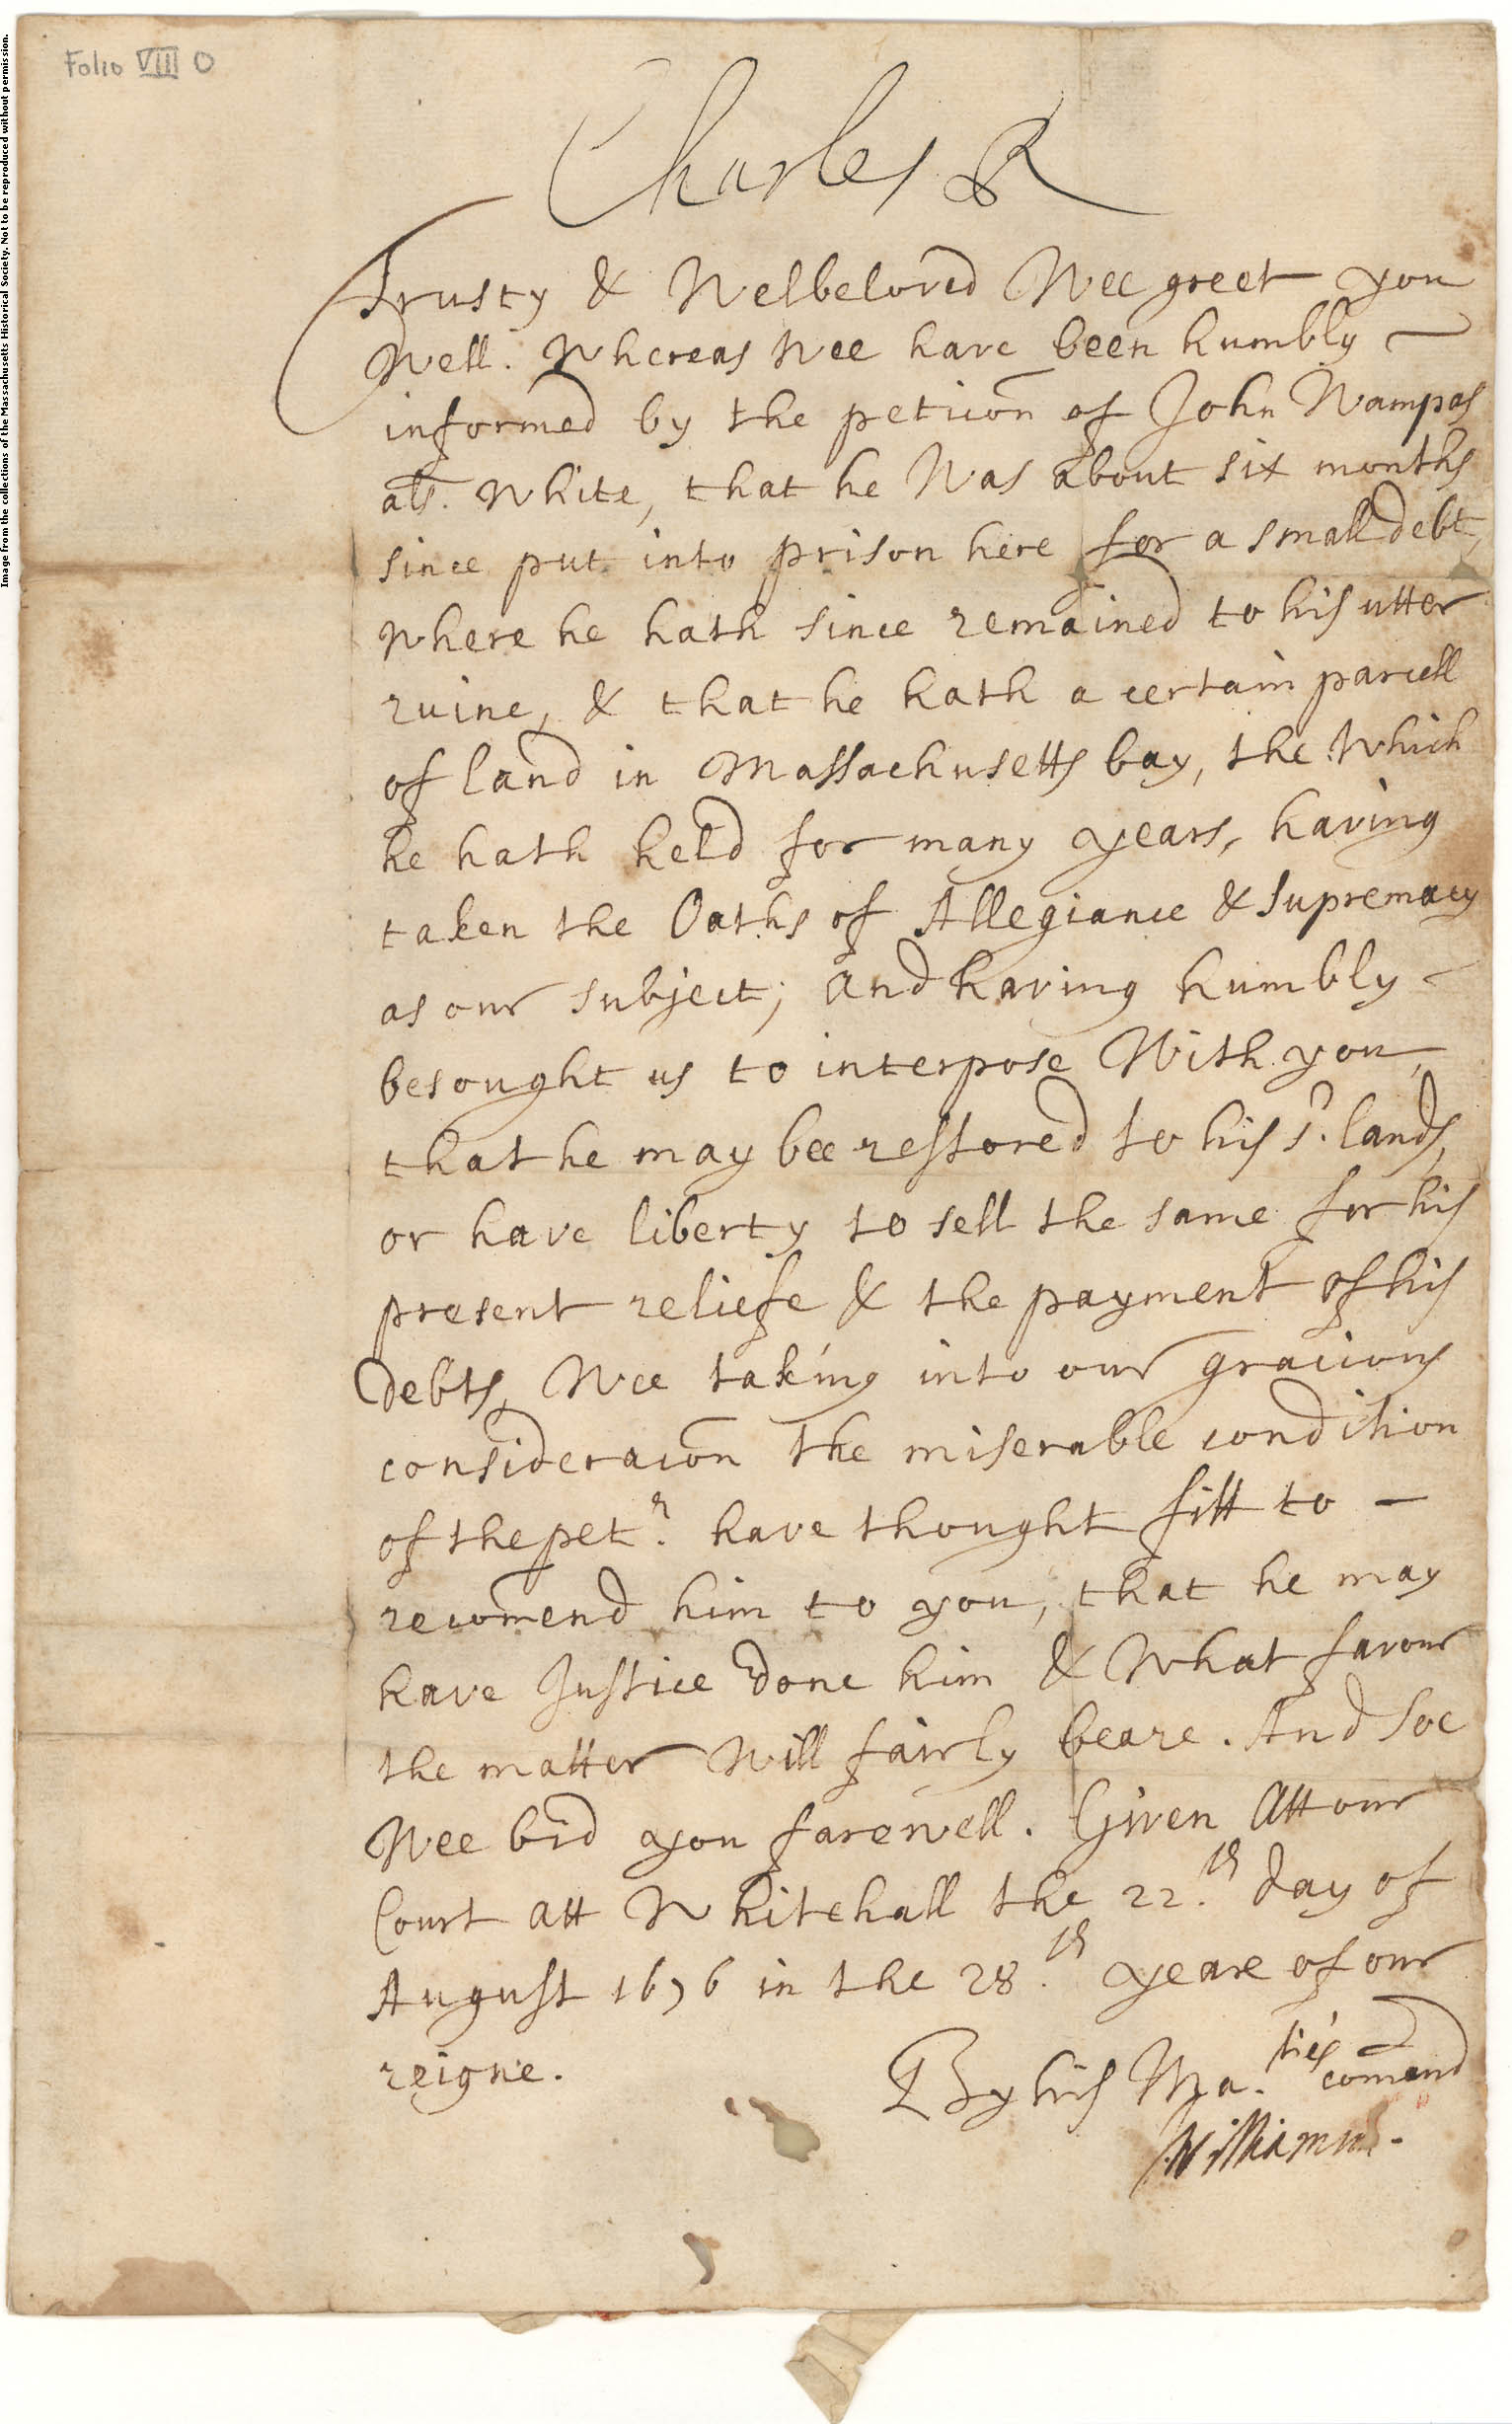 Folio VIII O
Image from the collections of the Massachusetts Historical Society. Not to be reproduced without permission.
Charles R
Trusty & Welbeloved Wee greet you
Well. Whereas Wee have been humbly
informed by the petic̄on of John Wampas
als. White, that he Was about six months
since put into prison here for a small debt,
Where he hath since remained to his utter
ruine, & that he hath a certain parcell
of land in Massachusetts bay, the Which
he hath held for many years, having
taken the Oaths of Allegiance & Supremacy
as our subject; And having humbly
besought us to interpose With you,
that he may bee restored to his sd. lands,
or have liberty to sell the same for his
present reliefe & the payment of his
Debts, Wee taking into our gracious
considerac̄on the miserable condition
of the petr. have thought fitt to —
recom̄end him to you, that he may
have Justice done him & What favour
the matter Will fairly beare. And soe
Wee bid you farewell. Given Att our
Court att Whitehall the 22.th day of
August 1676 in the 28.th yeare of our
reigne.
By his Ma.ties com̄and
Williamson.